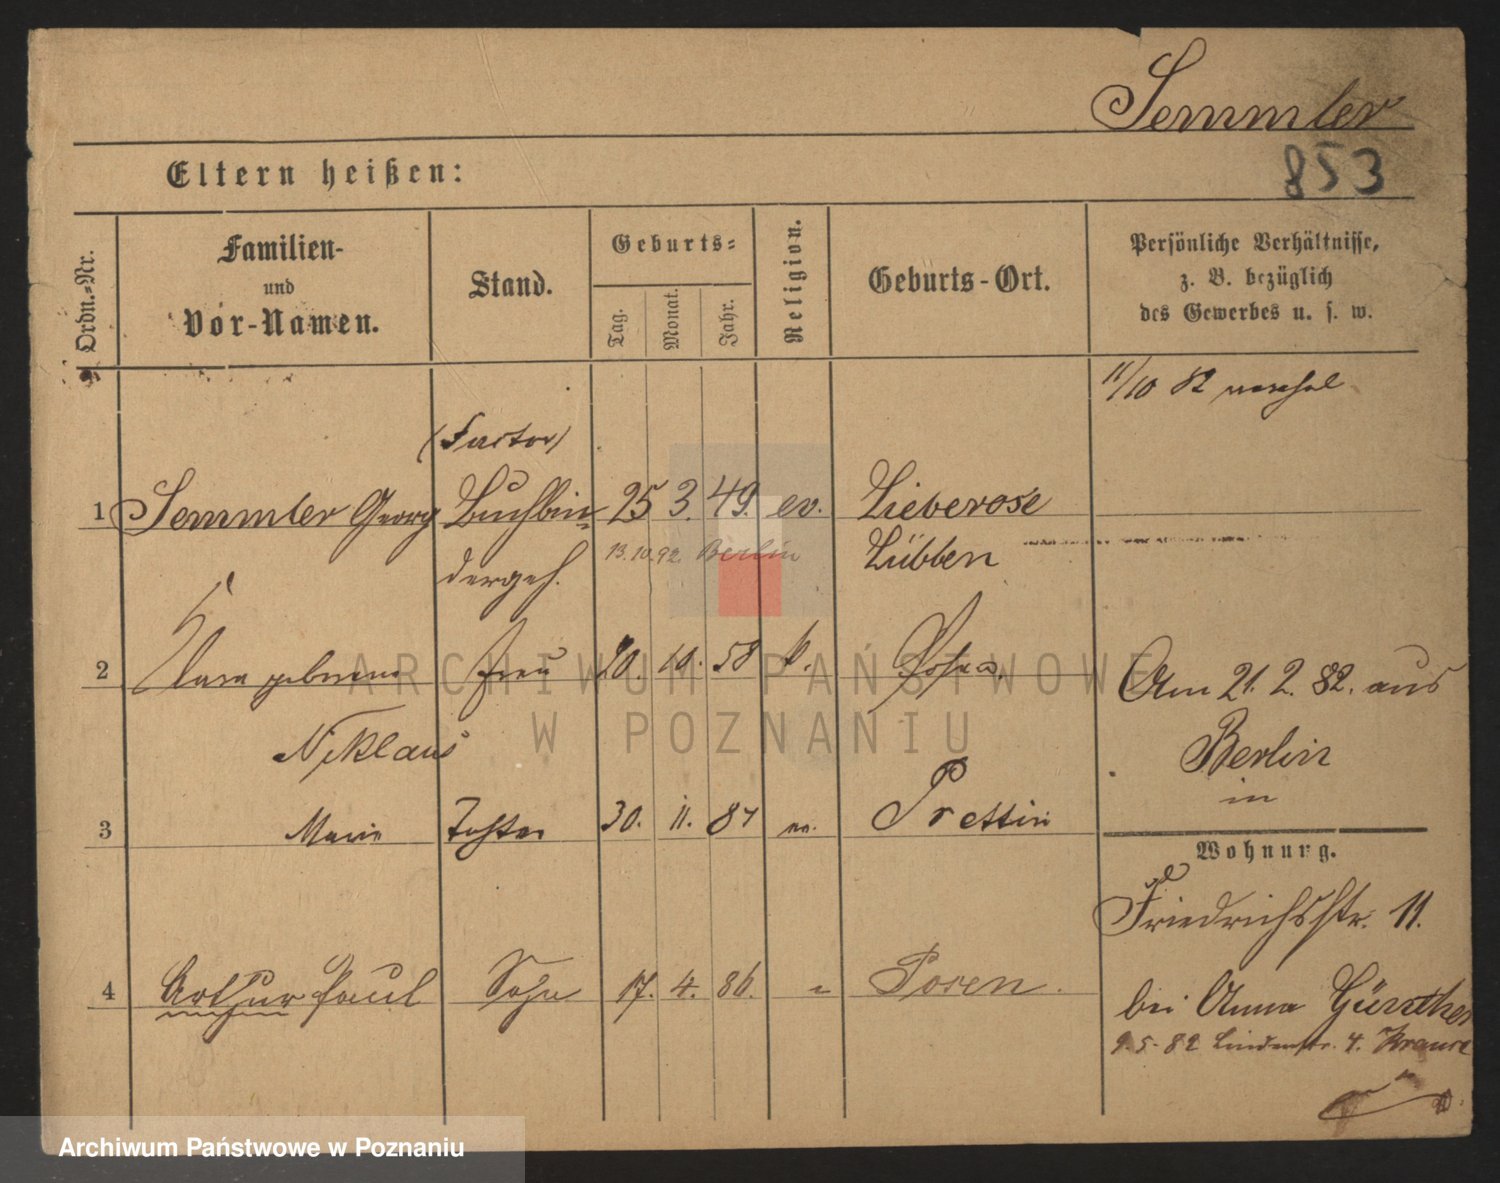 Semmler
853
Eltern heißen:
Ordn.-Nr.
Familien-
und
Vor-Namen.
Stand.
Geburts-
Tag.
Monat.
Jahr.
Religion.
Geburts-Ort.
Persönliche Verhältnisse,
z. B. bezüglich
des Gewerbes u. s. w.
11/10 82
(Factor)
1 Semmler Georg Buchbin- 25 3. 49. ev. Lieberose
13.10.92. Berlin
dergeh. Lübben
2 Clara geborene Frau 20. 10. 58 k. Posen
Am 21. 2. 82. aus
Niklaus
Berlin
in
3 Marie Tochter 30. 11. 81 ev. Prettin
Wohnung.
Friedrichsstr. 11.
4 Arthur Paul Sohn 17. 4. 86. " Posen.
bei Anna Günther
9.5.82 Lindenstr. 4. Krause
ARCHIWUM PAŃSTWOWE
W POZNANIU
Archiwum Państwowe w Poznaniu